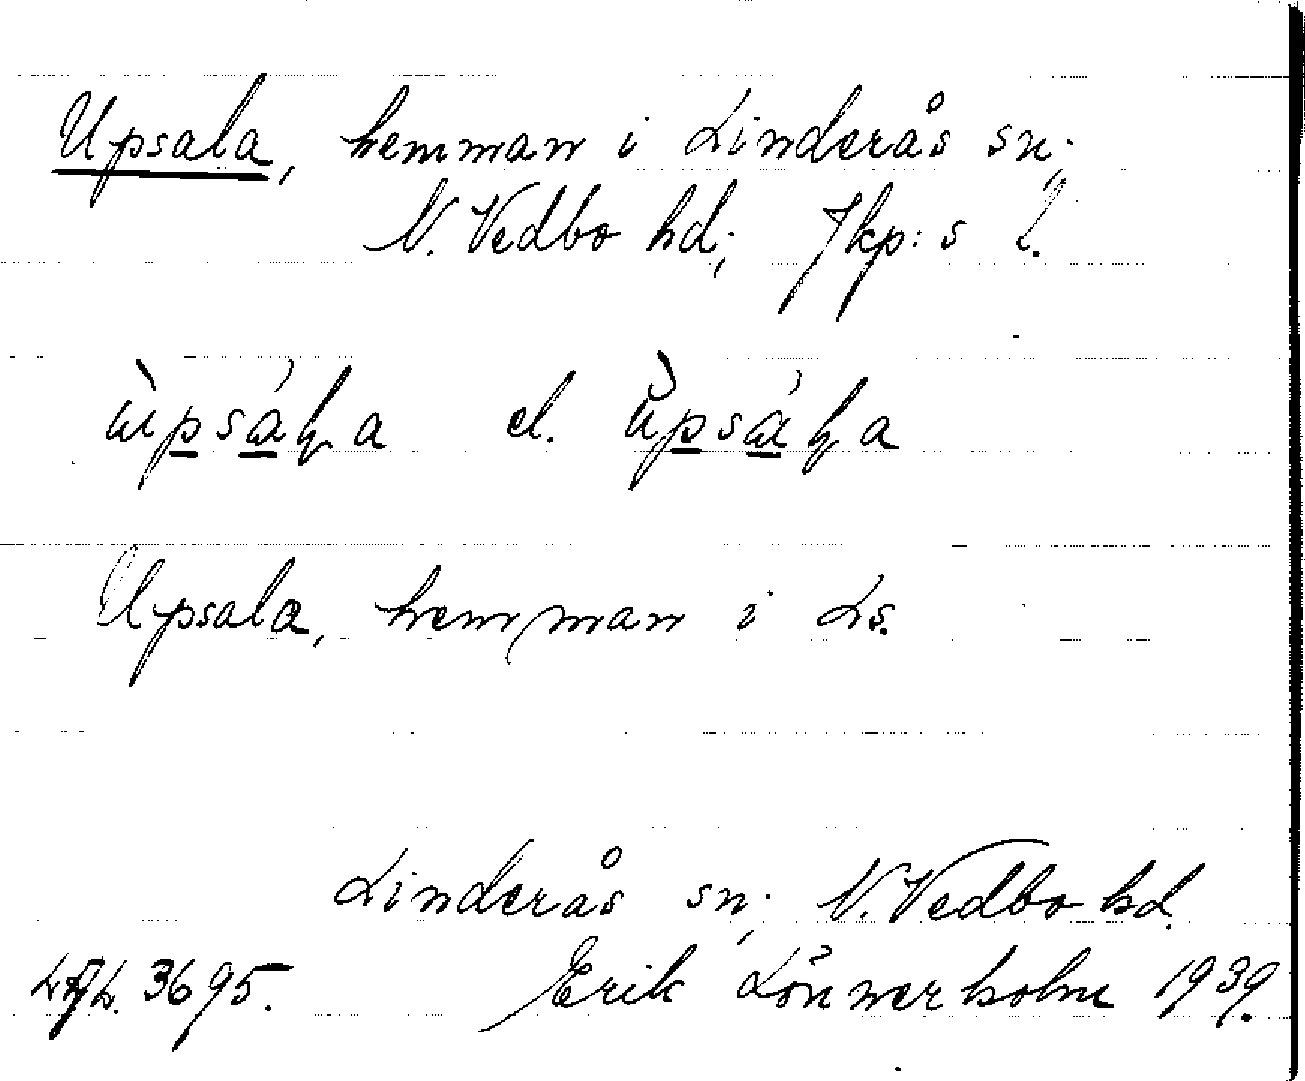 Upsala, hemman i Linderås sn;
N. Vedbo hd; Jkp:s l.
el.
Upsala, hemman i Ls.
Linderås sn; N. Vedbo hd.
3695. Erik Lönnerholm 1939.